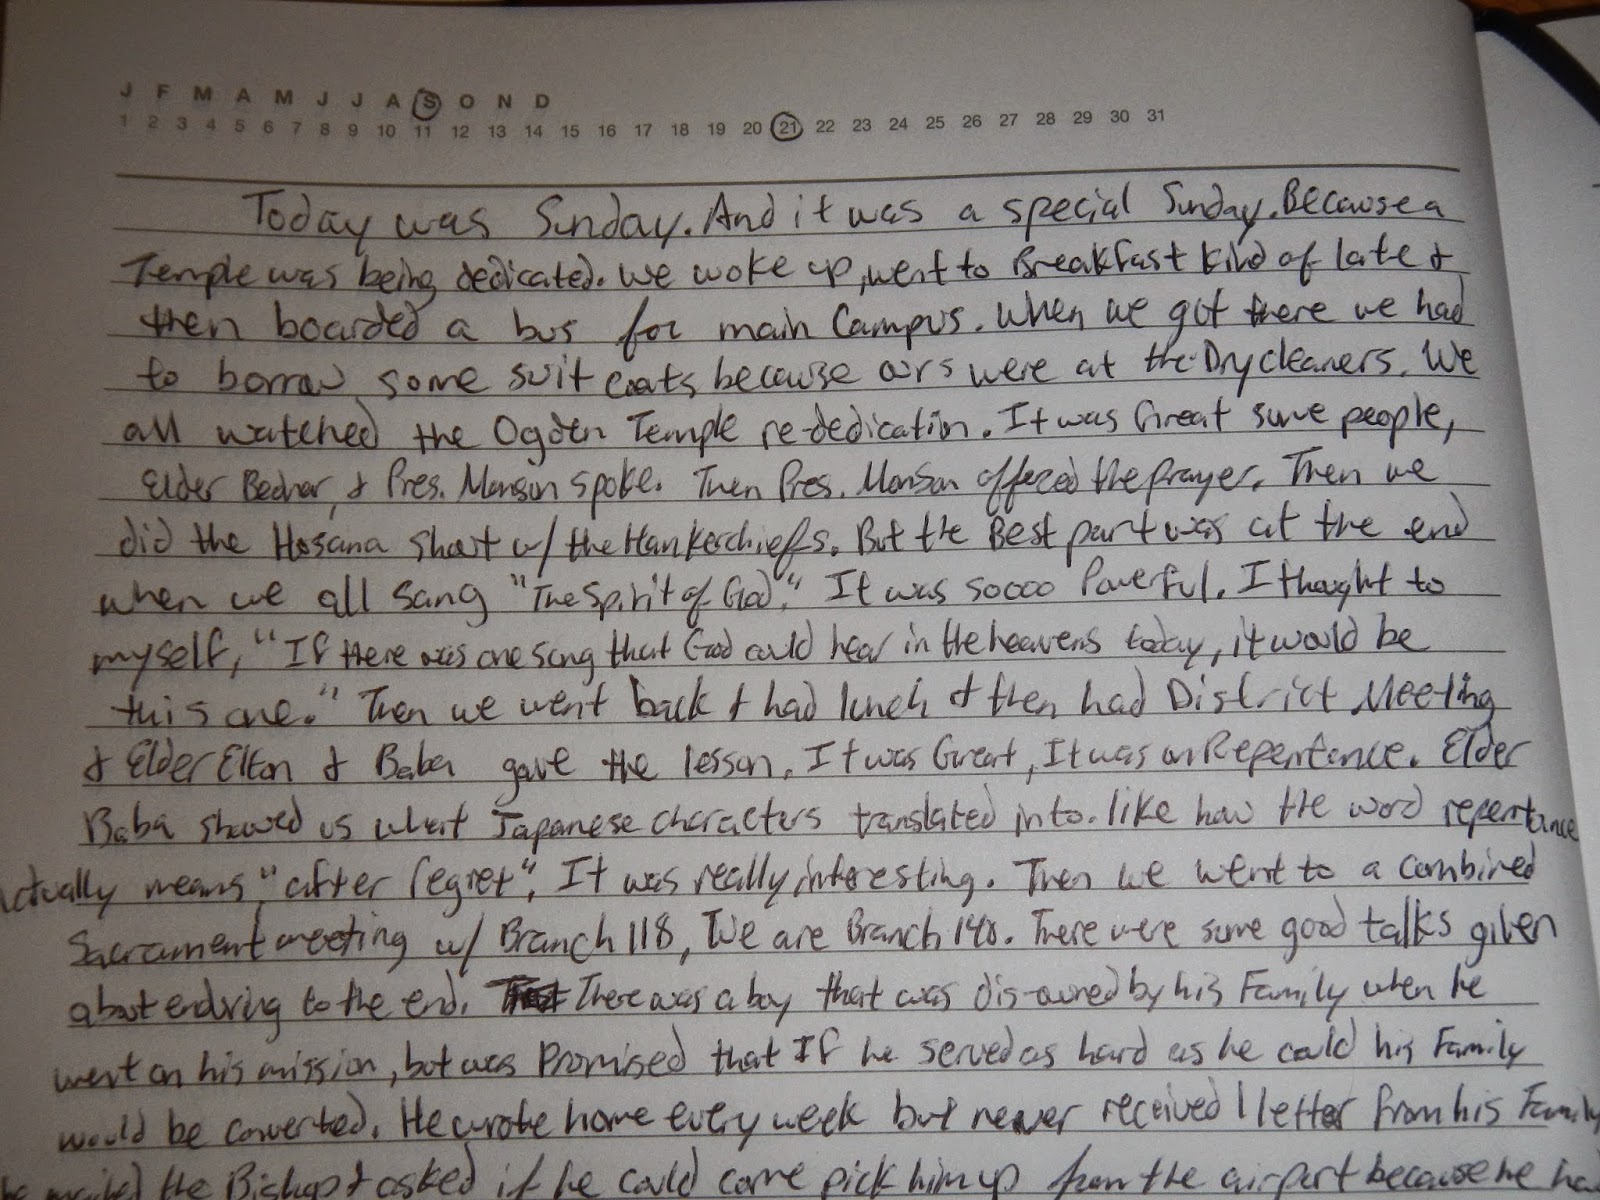 J F M A M J J A S O N D
1 2 3 4 5 6 7 8 9 10 11 12 13 14 15 16 17 18 19 20 21 22 23 24 25 26 27 28 29 30 31
Today was Sunday. And it was a special Sunday. Because a
Temple was being dedicated. We woke up, went to Breakfast kind of late &
then boarded a bus for main Campus. When we got there we had
to borrow some suit coats because ours were at the Drycleaners. We
all watched the Ogden Temple re-dedication. It was Great some people,
Elder Bednar, & Pres. Monson spoke. Then Pres. Monson offered the prayer. Then we
did the Hosana Shout w/ the Hankerchiefs. But the Best part was at the end
when we all sang "The Spirit of God". It was soooo Powerful. I thought to
myself, "If there was one song that God could hear in the heavens today, it would be
this one." Then we went back & had lunch & then had District Meeting
& Elder Elton & Baba gave the lesson. It was Great, It was on Repentance. Elder
Baba showed us what Japanese characters translated into. like how the word repentance
actually means "after regret". It was really interesting. Then we went to a combined
Sacrament meeting w/ Branch 118, We are Branch 140. There were some good talks given
about enduring to the end. There was a boy that was dis-owned by his Family when he
went on his mission, but was Promised that If he served as hard as he could his Family
would be converted. He wrote home every week but never received 1 letter from his Family
he the Bishop & asked if he could come pick him up from the airport because he had